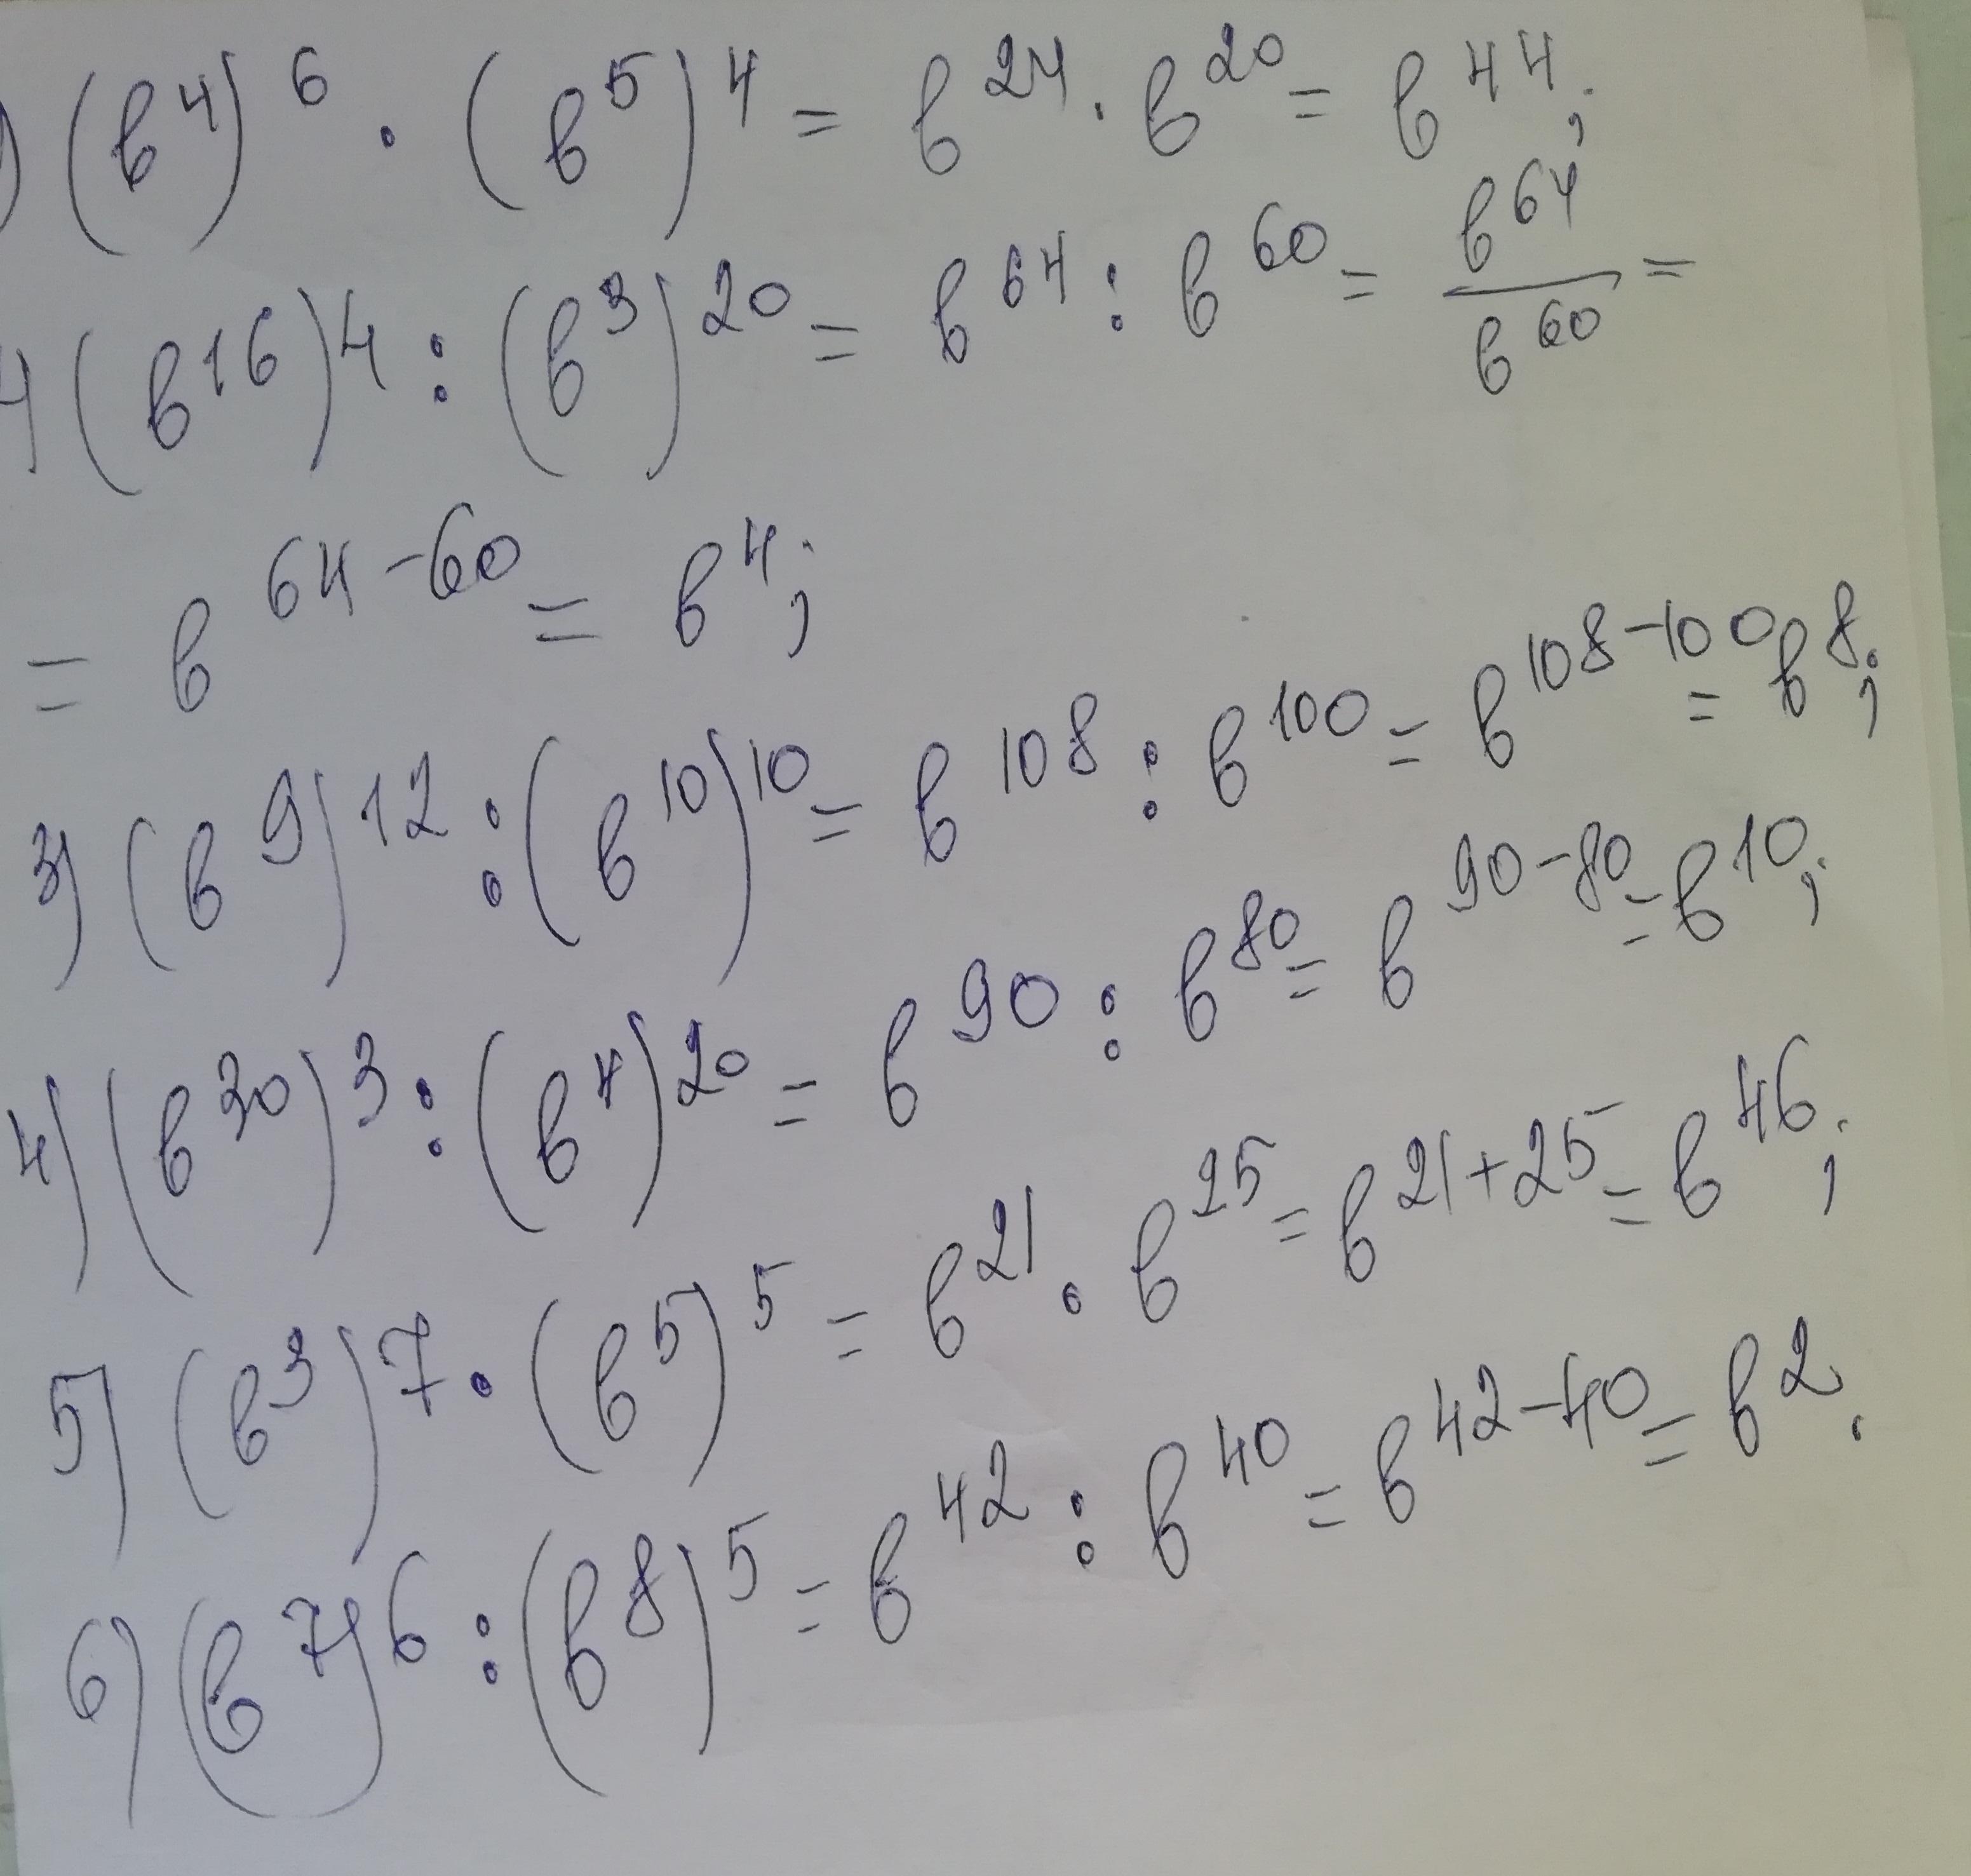 ) (b⁴)⁶ · (b⁵)⁴ = b²⁴ · b²⁰ = b⁴⁴;
) (b¹⁶)⁴ : (b³)²⁰ = b⁶⁴ : b⁶⁰ = b⁶⁴/b⁶⁰ =
= b⁶⁴⁻⁶⁰ = b⁴;
3) (b⁹)¹² : (b¹⁰)¹⁰ = b¹⁰⁸ : b¹⁰⁰ = b¹⁰⁸⁻¹⁰⁰ = b⁸;
4) (b³⁰)³ : (b⁴)²⁰ = b⁹⁰ : b⁸⁰ = b⁹⁰⁻⁸⁰ = b¹⁰;
5) (b³)⁷ · (b⁵)⁵ = b²¹ · b²⁵ = b²¹⁺²⁵ = b⁴⁶;
6) (b⁷)⁶ : (b⁸)⁵ = b⁴² : b⁴⁰ = b⁴²⁻⁴⁰ = b².